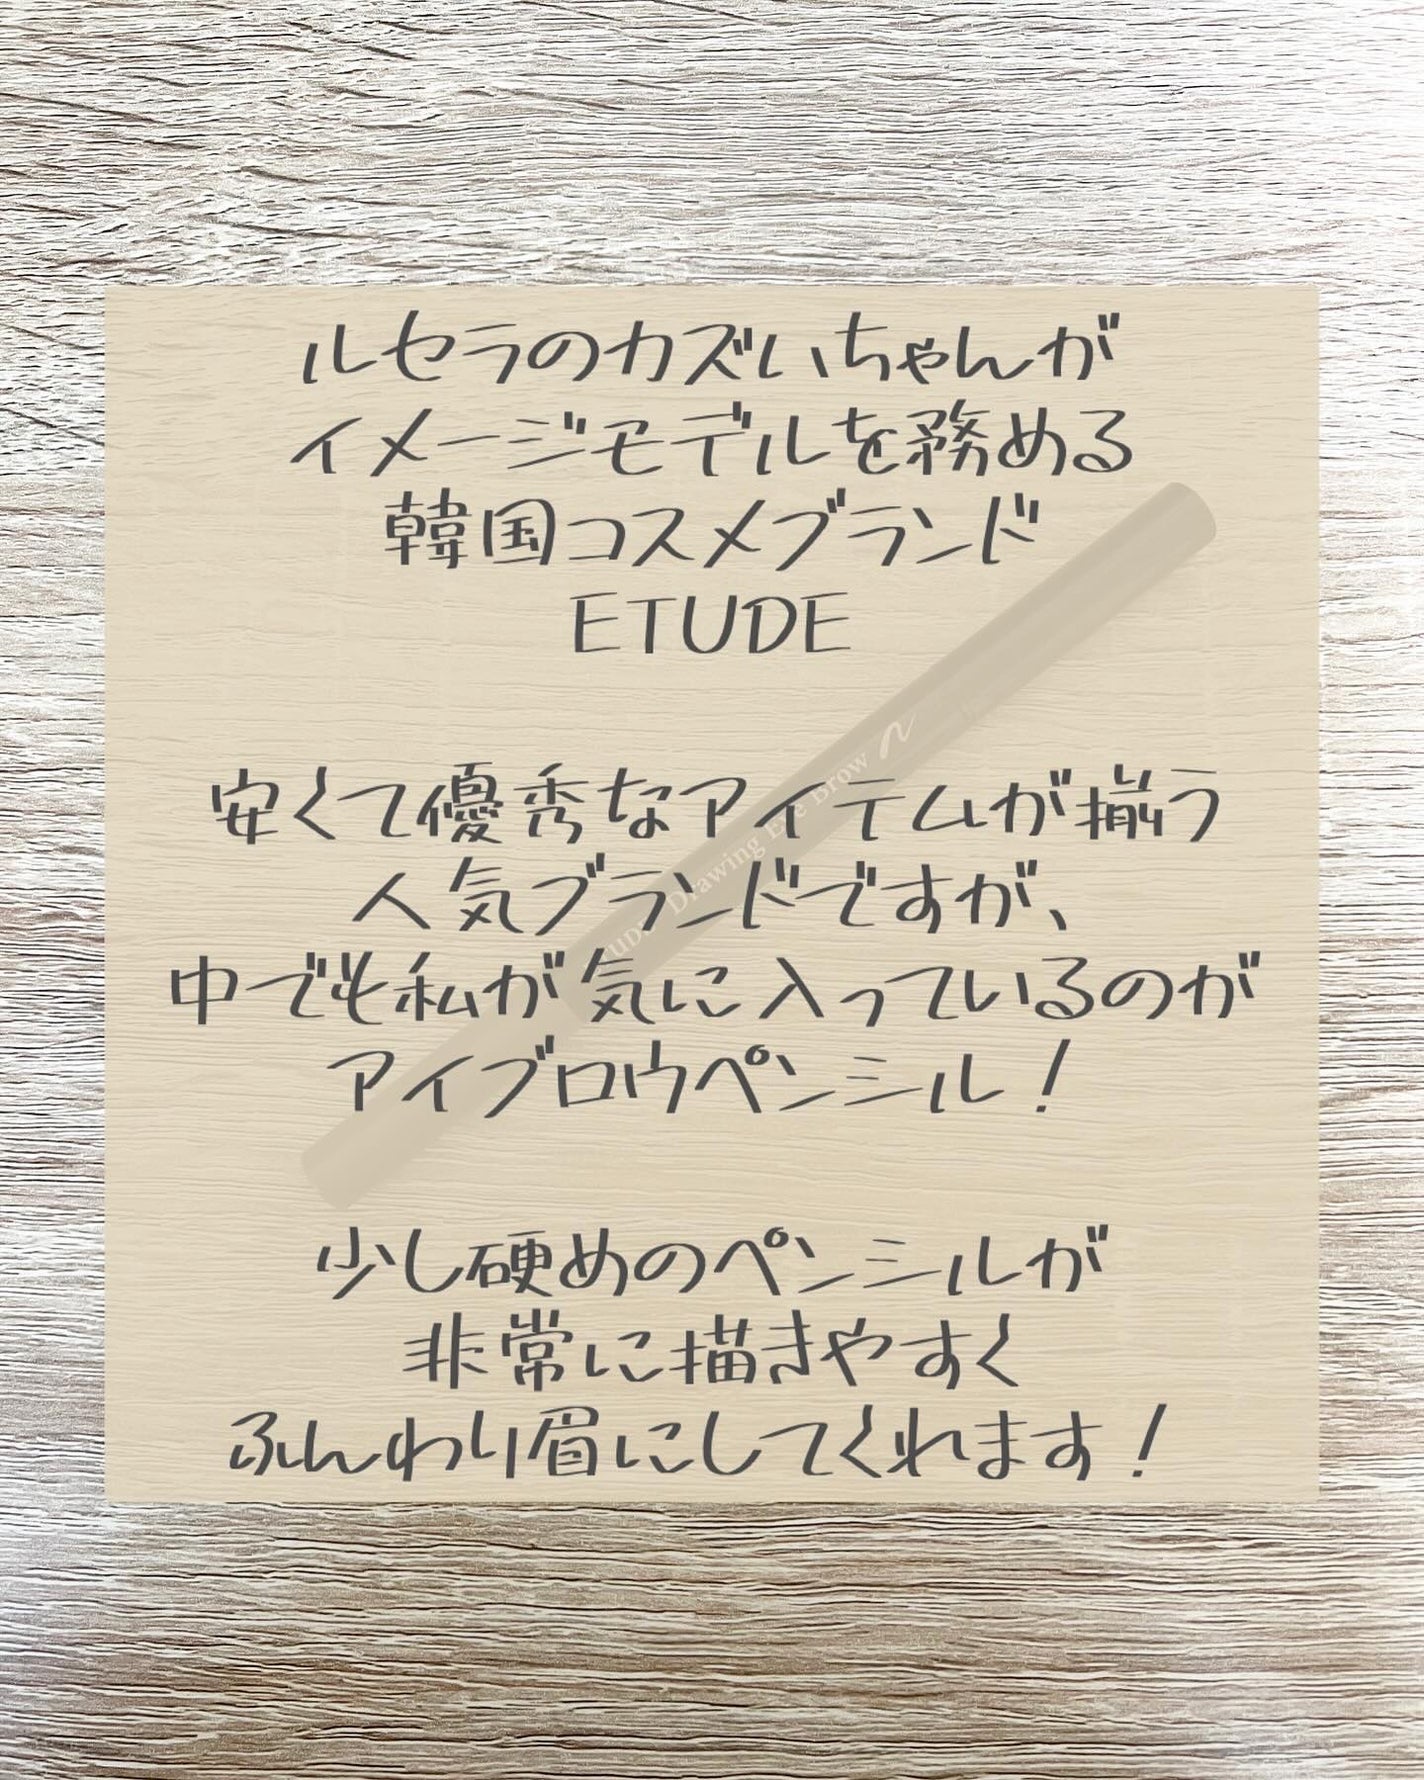 ルセラのカズいちゃんが
イメージモデルを務める
韓国コスメブランド
ETUDE
安くて優秀なアイテムが揃う
人気ブランドですが、
中でも私が気に入っているのが
アイブロウペンシル！
少し硬めのペンシルが
非常に描きやすく
ふんわり眉にしてくれます！
Drawing Eye Brow